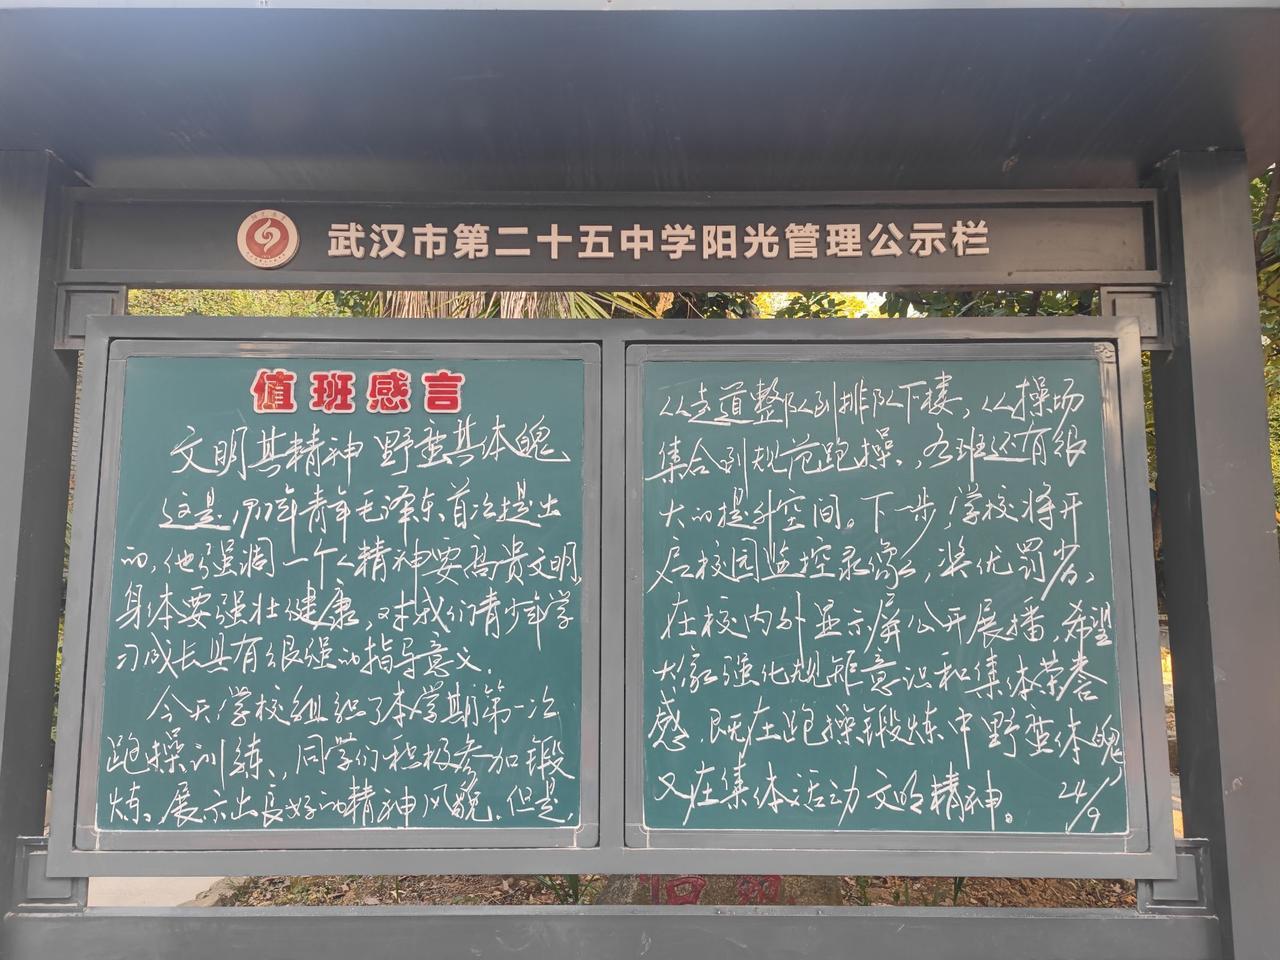 武汉市第二十五中学阳光管理公示栏
值班感言
文明其精神 野蛮其体魄,
这是1917年青年毛泽东首次提出
的,他强调一个人精神要高贵文明,
身体要强壮健康,对我们青少年学
习成长具有很强的指导意义.
今天学校组织了本学期第一次
跑操训练,同学们积极参加锻
炼。展示出良好的精神风貌.但是,
从走道整队到排队下楼,从操场
集合到规范跑操,各班还有很
大的提升空间。下一步,学校将开
启校园监控录像,奖优罚劣,
在校内外显示屏公开展播,希望
大家强化规矩意识和集体荣誉
感,既在跑操锻炼中野蛮体魄,
又在集体活动文明精神。 24/9